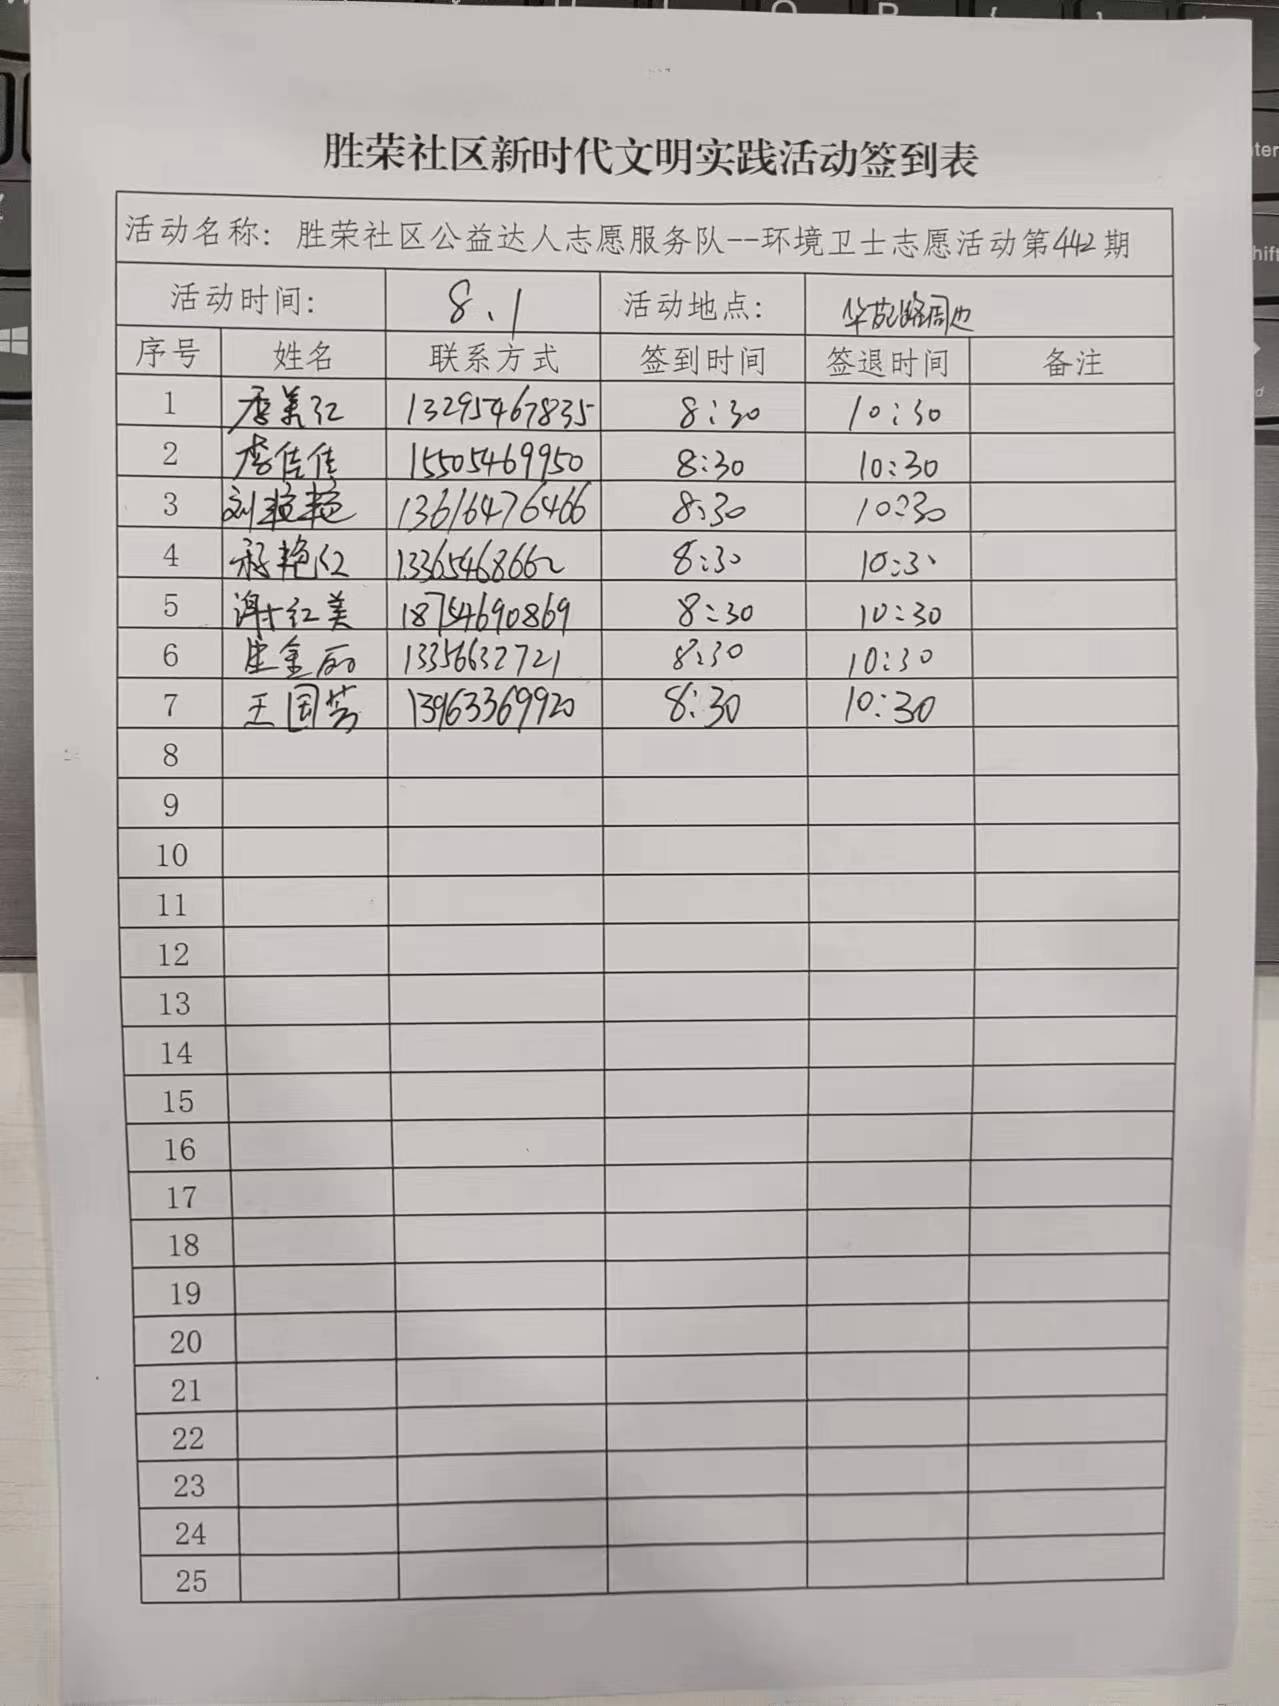 胜荣社区新时代文明实践活动签到表
活动名称：胜荣社区公益达人志愿服务队--环境卫士志愿活动第442期
活动时间： 8.1 活动地点： 华苑路周边
序号 姓名 联系方式 签到时间 签退时间 备注
1 李美红 13295467835 8:30 10:30
2 李佳佳 15505469950 8:30 10:30
3 刘艳艳 13616476466 8:30 10:30
4 艳红 13365468662 8:30 10:30
5 谢红美 18754690869 8:30 10:30
6 金丽 13356632721 8:30 10:30
7 王国芳 13963369920 8:30 10:30
8
9
10
11
12
13
14
15
16
17
18
19
20
21
22
23
24
25